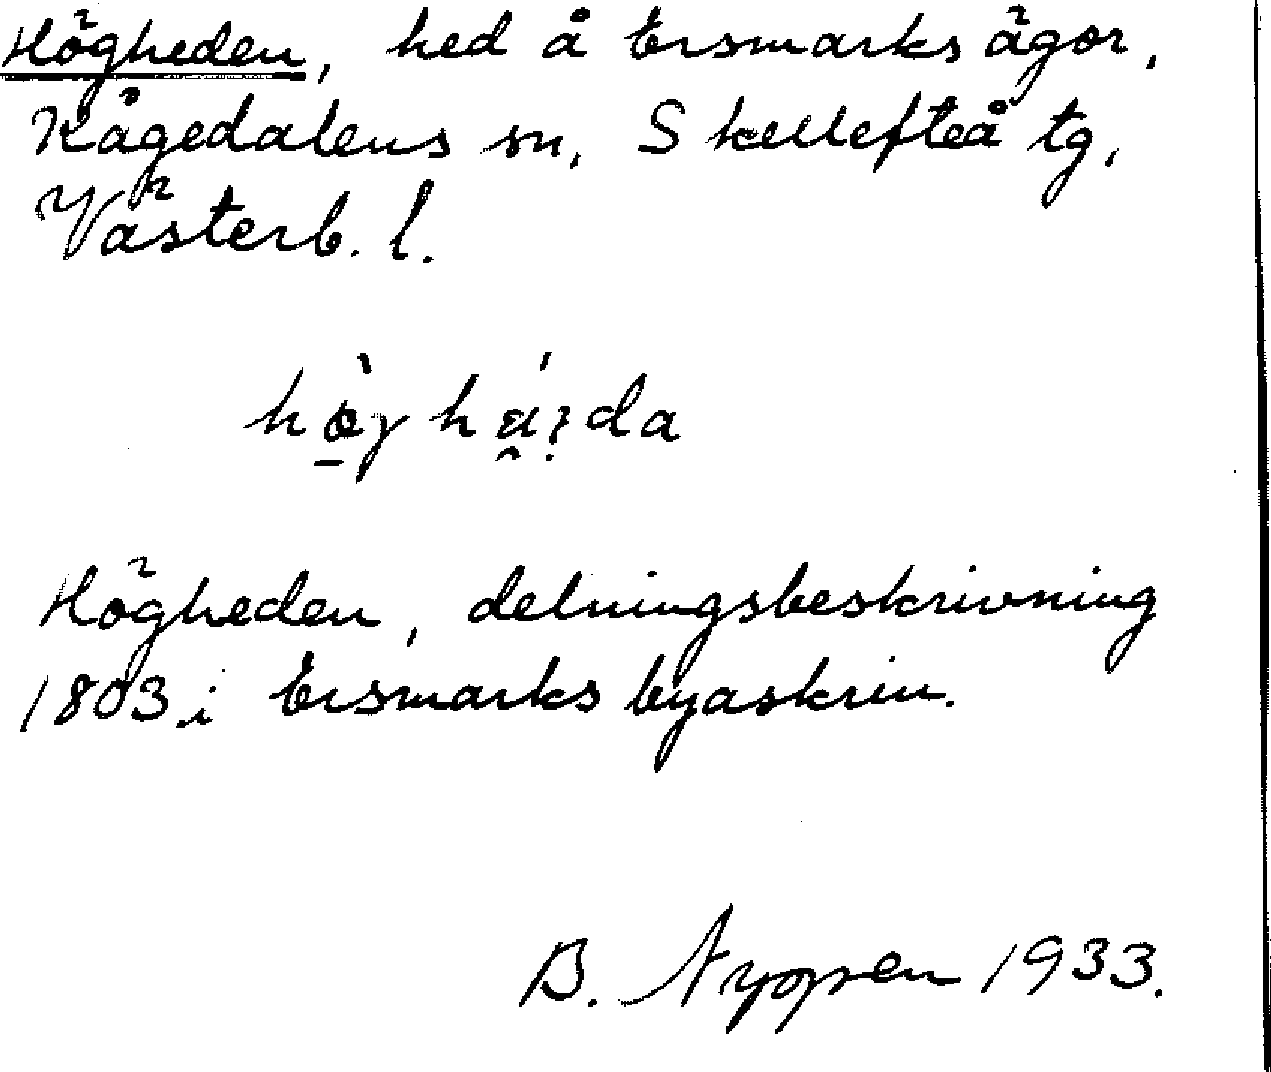 Högheden, hed å Ersmarks ägor,
Kågedalens sn, Skellefteå tg,
Västerb. l.
Högheden, delningsbeskrivning
1803 i Ersmarks byaskrin.
B. Nyssen 1933.